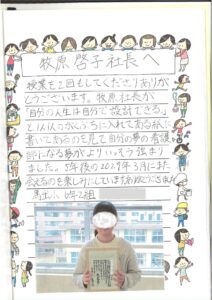 牧原啓子社長へ
授業を2回もしてくださりありが
とうございます。牧原社長が
「自分の人生は自分で設計できる」
と
れて
紙に
書いてあるのを見て自分の夢の看護
師になる夢がよりいっそう強まり
ました。5年後の2029年3月にまた
会えるのを楽しみにしています
小 6年2組